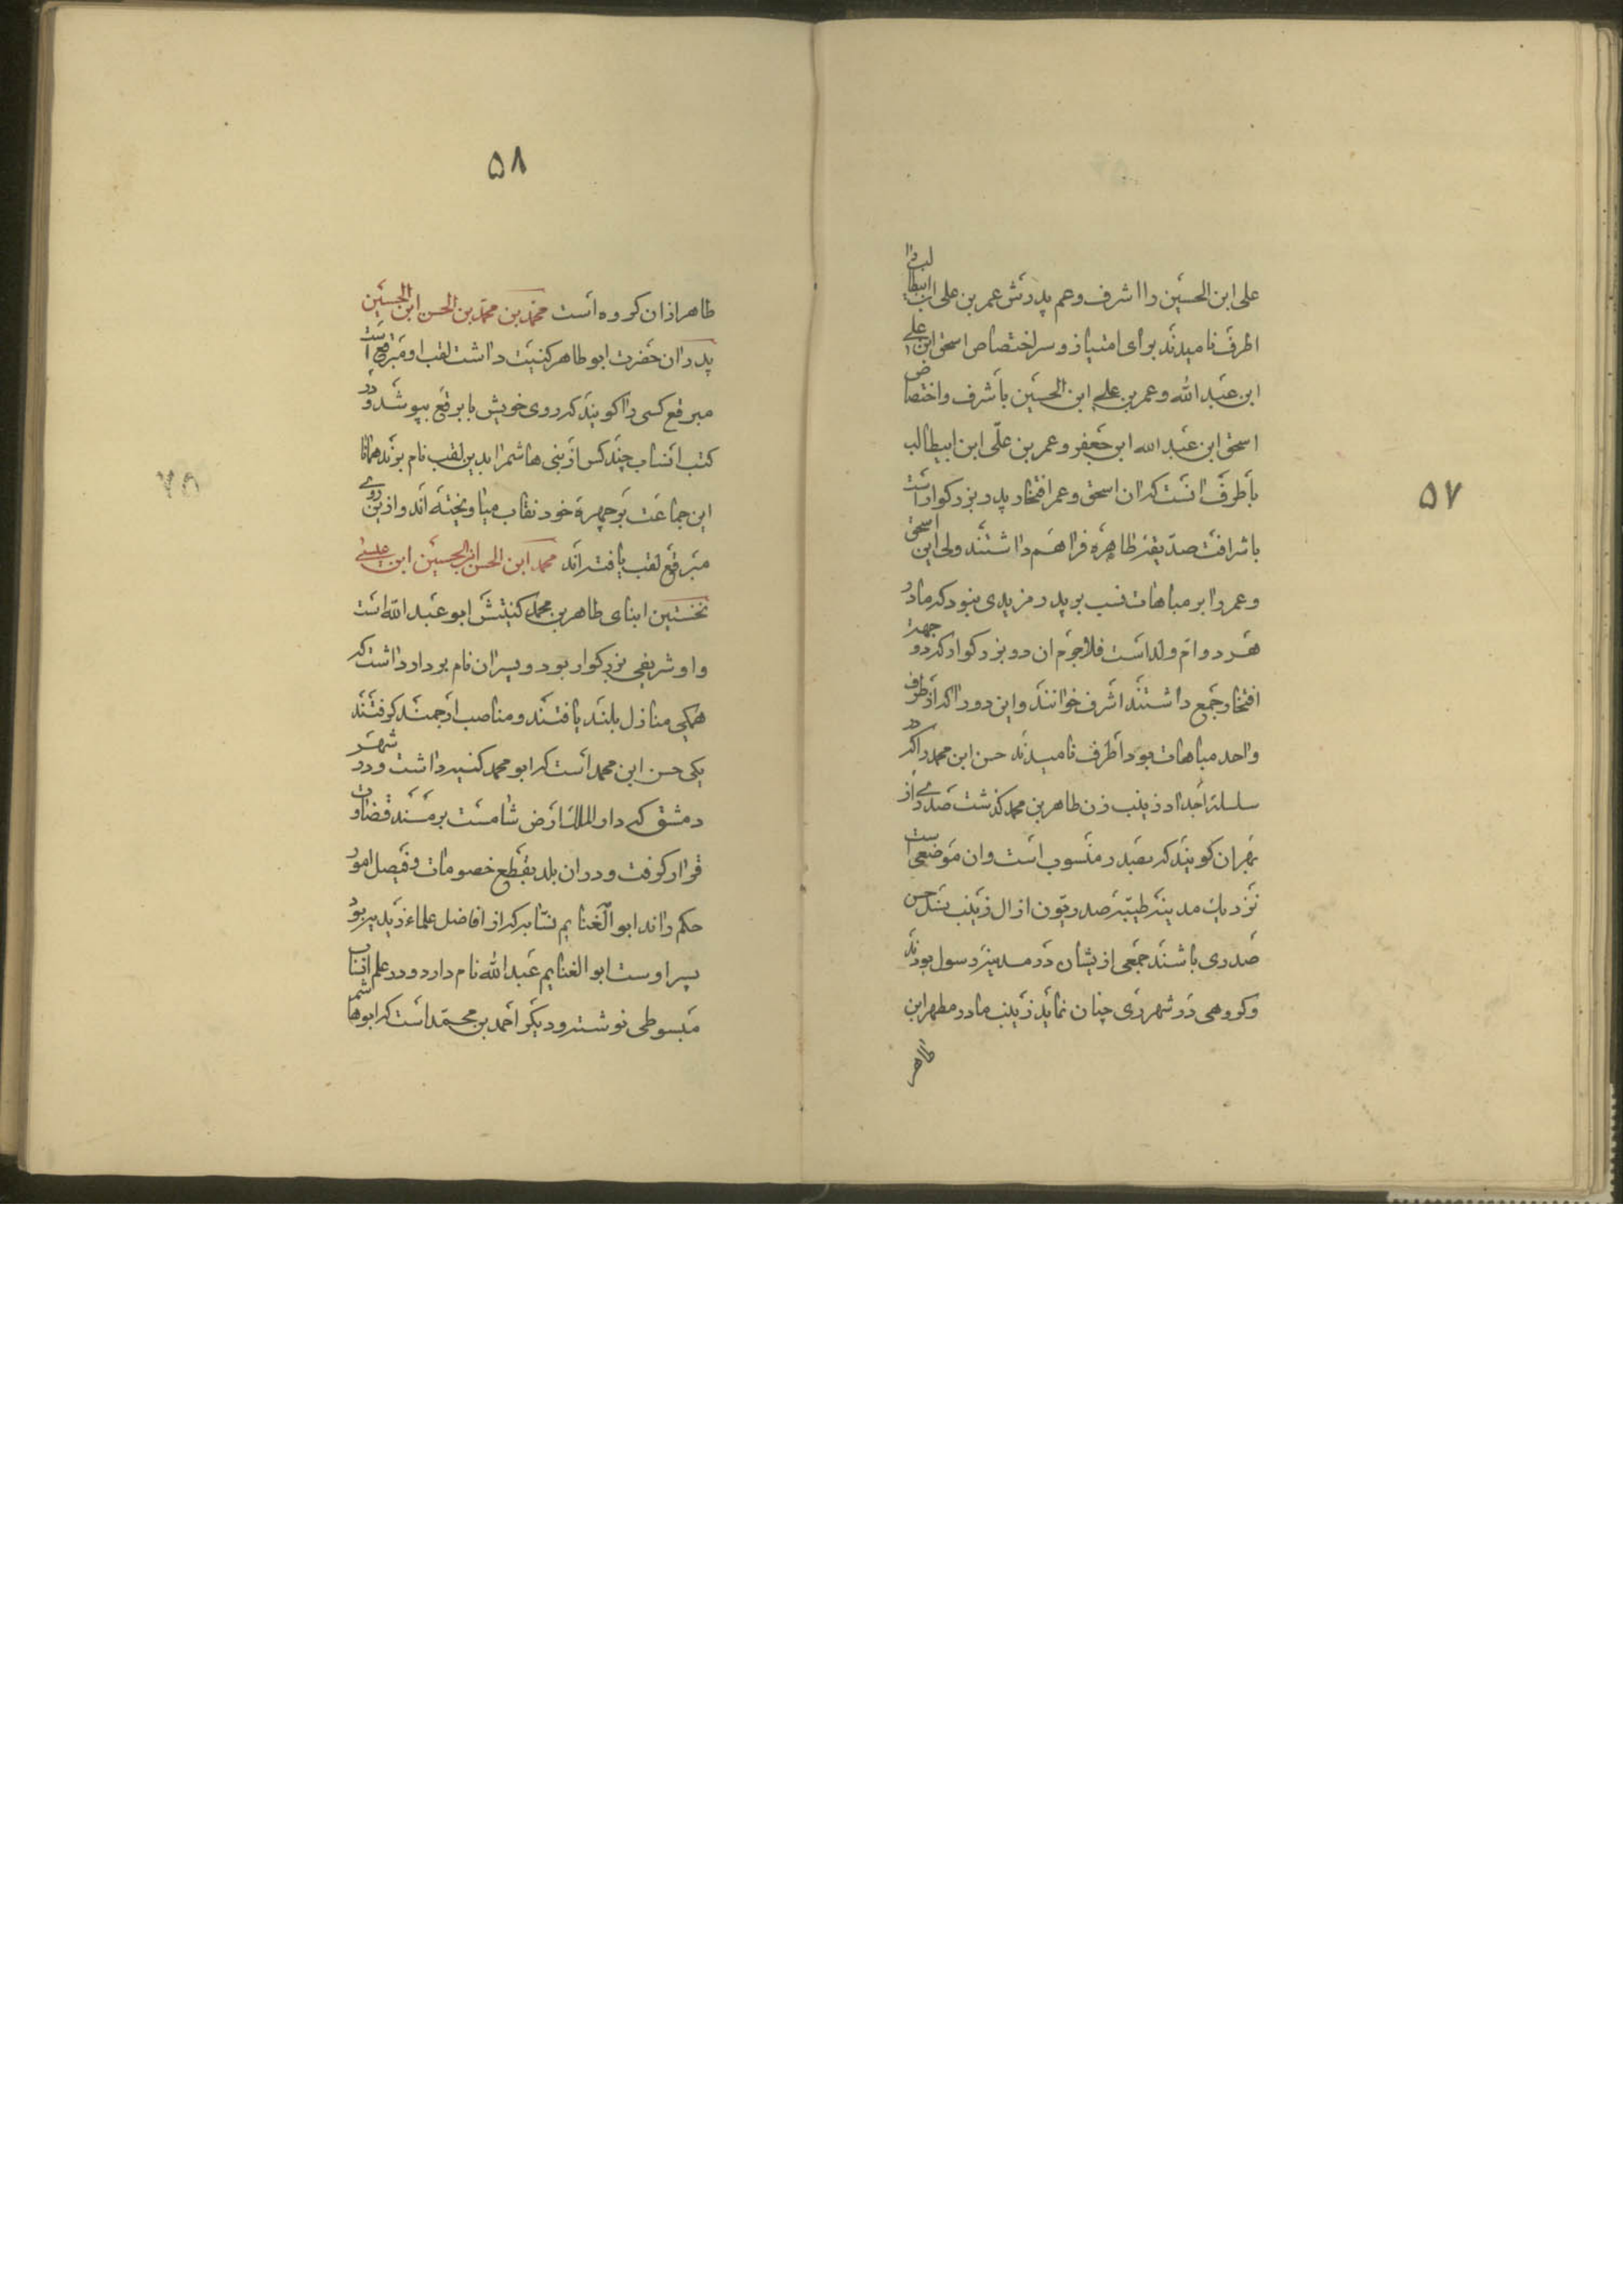 ۵۷
علی ابن الحسین را اشرف و عم پدرش عمر بن علی ابن ابیطالب را
اطرف نامیدند برای امتیاز و سر اختصاص اسحق ابن علی
ابن عبد الله و عمر بن علی ابن الحسین باشرف و اختصاص
اسحق ابن عبد الله ابن جعفر و عمر بن علی ابن ابیطالب
باطرف انست که ان اسحق و عمر افتخار پدر بزرکوار را
باشرافت صدیقه طاهره فراهم داشتند ولی این اسحق
و عمر را بر مباهات نسب بر پدر مزیدی نبود که مادر
هر دو ام ولد است فلاجرم ان دو بزرکوار که دو جهة
افتخار جمع داشتند اشرف خوانند و این دو را که از طرف
واحد مباهات بود اطرف نامیدند حسن ابن محمد را که در
سلسلهٔ اجداد زینب زن طاهر بن محمد کذشت صدری از
بهر ان کویند که بصدر منسوب است و ان موضعی است
نزدیک مدینهٔ طیبه صدریون از ال زینب بنت حسن
صدری باشند جمعی ازیشان در مدینهٔ رسول بودند
و کروهی در شهر ری چنان نماید زینب مادر مطهر ابن
طاهر
۵۸
طاهر ازان کروه است محمد بن محمد بن الحسن ابن الحسین
پدر ان حضرت ابو طاهر کنیت داشت لقب او مبرقع است
مبرقع کسی را کویند که روی خویش با برقع بپوشد و در
کتب انساب چند کس از بنی هاشم را بدین لقب نام برند همانا
این جماعت بر چهرهٔ خود نقاب میاویخته اند و ازین روی
مبرقع لقب یافته اند محمد ابن الحسن ابن الحسین ابن عیسی
نخستین ابنای طاهر بن محمد کنیتش ابو عبد الله است
و او شریفی بزرکوار بود و پسران نام بردار داشت که
همکی منازل بلند یافتند و مناصب ارجمند کرفتند
یکی حسن ابن محمد است که ابو محمد کنیه داشت و در شهر
دمشق که دار الملک ارض شامست بر مسند قضاوت
قرار کرفت و در ان بلد بقطع خصومات و فیصل امور
حکم راند ابو الغنایم نسّابه که از افاضل علماء زیدیه بود
پسر اوست ابو الغنایم عبد الله نام دارد و در علم انساب
مبسوطی نوشته و دیکر احمد بن محمد است که ابو هاشم